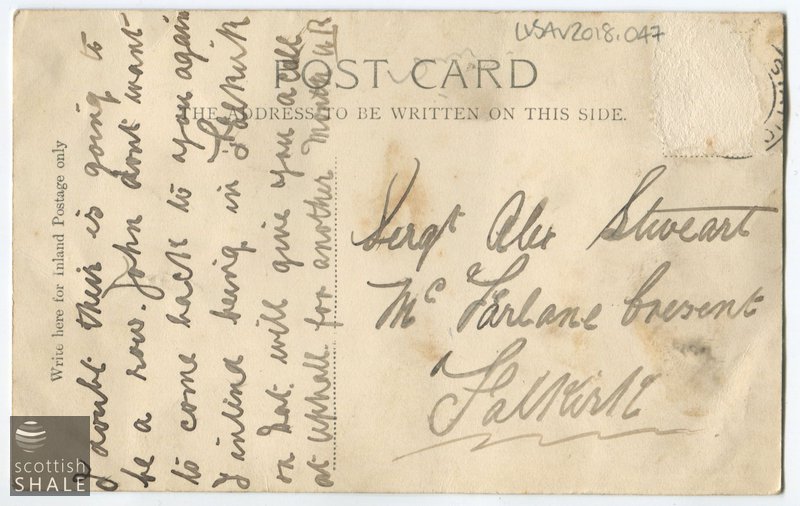 LVSAV2018.047
POST CARD
THE ADDRESS TO BE WRITTEN ON THIS SIDE.
Write here for Inland Postage only
I doubt their is going to
be a row. John dont want
to come back to you again
I intind being in Falkirk
on Sat. will give you a call
at Uphall for another Month AB
Sergt Alex Stweart
Mc Farlane Cresent
Falkirk
scottish
SHALE